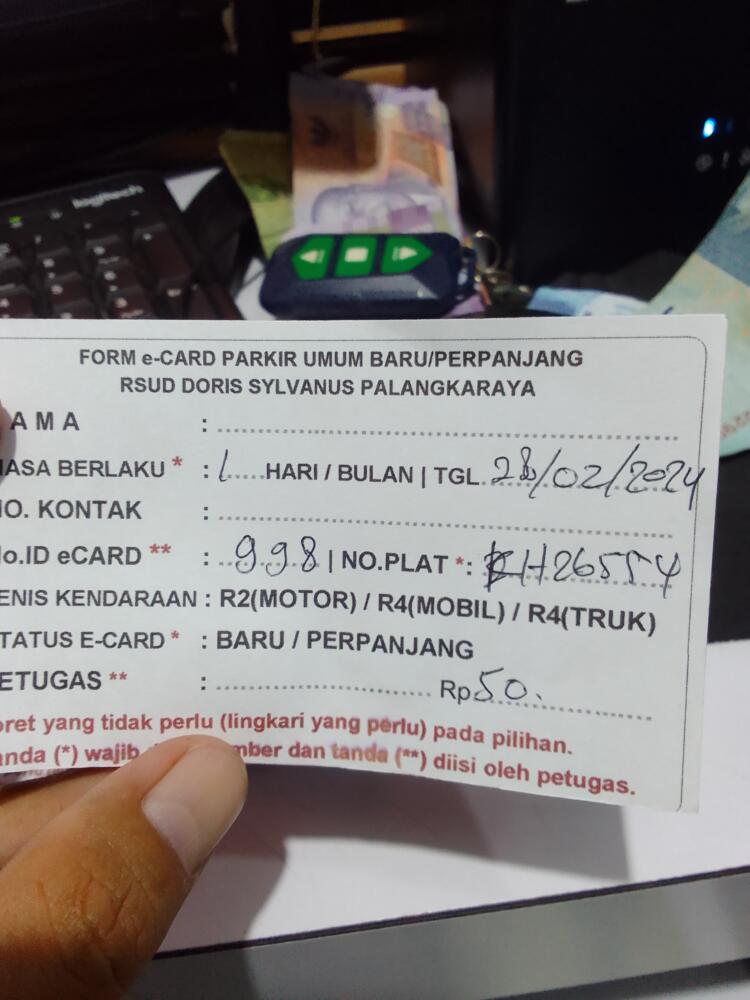 logitech
FORM e-CARD PARKIR UMUM BARU/PERPANJANG
RSUD DORIS SYLVANUS PALANGKARAYA
AMA : ........
ASA BERLAKU * : 1.....HARI / BULAN | TGL. 28/02/2024
O. KONTAK : ........
o.ID eCARD ** : ..998 | NO.PLAT *: KH2655Y
ENIS KENDARAAN : R2(MOTOR) / R4(MOBIL) / R4(TRUK)
TATUS E-CARD * : BARU / PERPANJANG
ETUGAS ** : ........ Rp50.
oret yang tidak perlu (lingkari yang perlu) pada pilihan.
anda (*) wajib mber dan tanda (**) diisi oleh petugas.